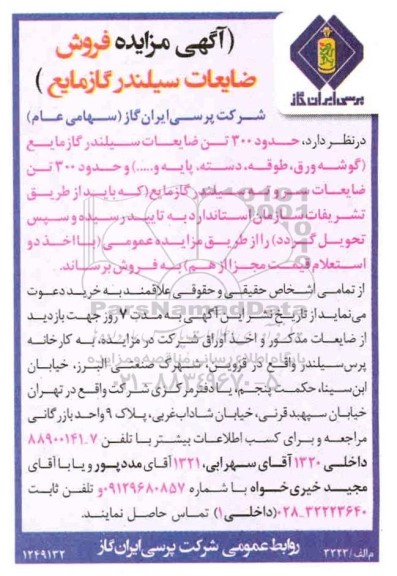 (آگهی مزایده فروش
ضایعات سیلندر گازمایع)
پرسی ایران گاز
شرکت پرسی ایران گاز (سهامی عام)
درنظر دارد، حدود ۳۰۰ تن ضایعات سیلندر گازمایع
(گوشه ورق، طوقه، دسته، پایه و.....) و حدود ۳۰۰ تن
ضایعات سر و ته سیلندر گازمایع (که باید از طریق
تشریفات سازمان استاندارد به تایید رسیده و سپس
تحویل گردد) را از طریق مزایده عمومی (با اخذ دو
استعلام قیمت مجزا از هم) به فروش برساند.
از تمامی اشخاص حقیقی و حقوقی علاقمند به خرید دعوت
می‌نماید از تاریخ نشر این آگهی به مدت ۷ روز جهت بازدید
از ضایعات مذکور و اخذ اوراق شرکت در مزایده، به کارخانه
پرس سیلندر واقع در قزوین، شهرک صنعتی البرز، خیابان
ابن سینا، حکمت پنجم، یا دفتر مرکزی شرکت واقع در تهران
خیابان سپهبد قرنی، خیابان شاداب غربی، پلاک ۹ واحد بازرگانی
مراجعه و برای کسب اطلاعات بیشتر با تلفن ۷-۸۸۹۰۰۱۴۱
داخلی ۱۳۲۰ آقای سهرابی، ۱۳۲۱ آقای مددپور و یا با آقای
مجید خیری خواه با شماره ۰۹۱۲۹۶۸۰۸۵۷ و تلفن ثابت
۰۲۸-۳۲۲۲۳۶۴۰ (داخلی ۱) تماس حاصل نمایند.
روابط عمومی شرکت پرسی ایران گاز
م الف/۳۳۲۳
۱۲۴۹۱۳۲
ParsNamadData
پایگاه اطلاع رسانی مناقصه و مزایده
۰۲۱-۸۸۳۴۹۶۷۰-۵